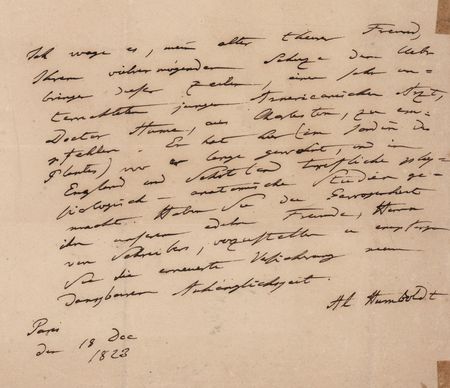 Ich wage es, mein alter theurer Freund,
Ihrem vielvermögenden Schuze den Ueber-
bringer dieser Zeilen, einen sehr un-
terrichteten jungen Americanischen Arzt,
Doctor Hume, aus Charleston, zu em-
pfehlen. Er hat hier (im Jardin des
Plantes) wo er lange gewohnt, und in
England und Schottland trefliche phy-
siologisch-anatomische Studien ge-
macht. Haben Sie die Gewogenheit
ihn unserem edeln Freunde, Herrn
von Schreibers, vorzustellen u empfangen
Sie die erneuerte Versicherung meiner
dankbaren Anhänglichkeit.
Al Humboldt
Paris
den 18 Dec
1823